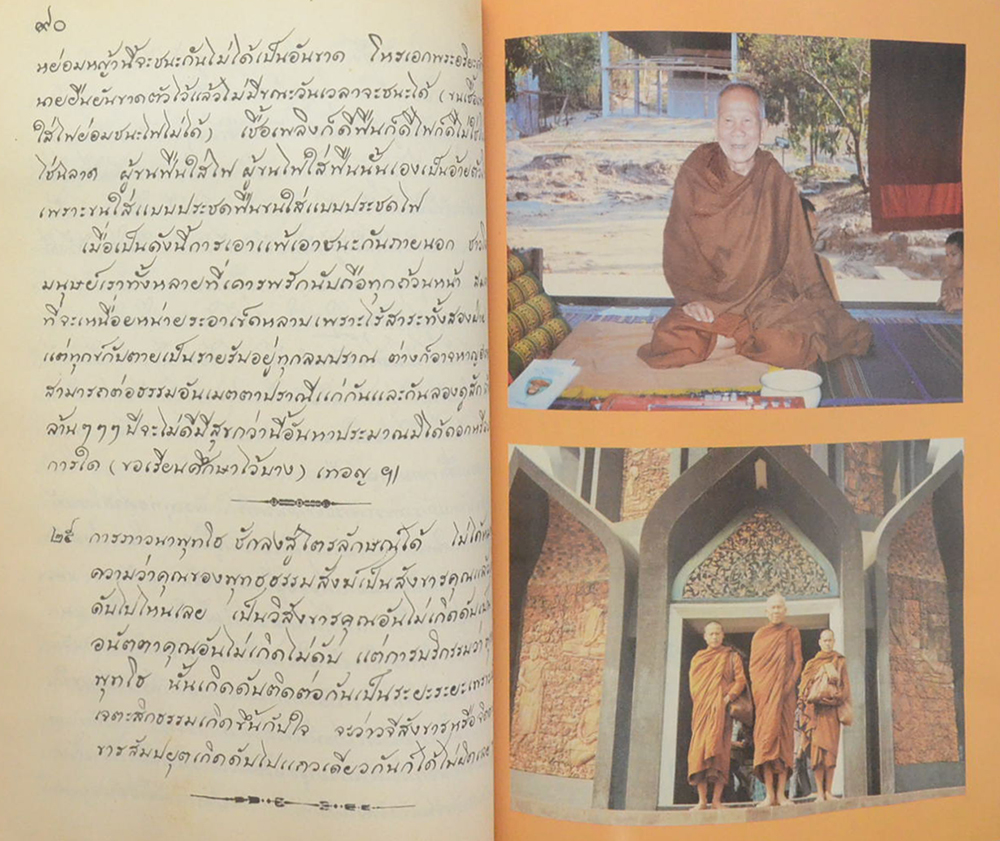 ๙๐
หย่อมหญ้านี้จะชนะกันไม่ได้เป็นอันขาด โหรเอกพระอริยะ
นายยืนยันขาดตัวไว้แล้วไม่มีขณะวันเวลาจะชนะได้ (ขนเชื้อ
ใส่ไฟย่อมชนะไฟไม่ได้) เชื้อเพลิงก็ดีฟืนก็ดีไฟก็ดีไม่ใช่
ใช่ฉลาด ผู้ขนฟืนใส่ไฟ ผู้ขนไฟใส่ฟืนนั้นเองเป็นอ้าย
เพราะขนใส่แบบประชดฟืนขนใส่แบบประชดไฟ
เมื่อเป็นดังนี้การเอาแพ้เอาชนะกันภายนอก
มนุษย์เราทั้งหลายที่เคารพรักนับถือทุกถ้วนหน้า
ที่จะเหนื่อยหน่ายระอาเข็ดหลาบเพราะไร้สาระทั้งสอง
แต่ทุกข์กับตายเป็นรายรับอยู่ทุกลมปราณ ต่างก็อาจหาญ
สามารถต่อธรรมอันเมตตาปราณีแก่กันและกันลองดูสัก
ล้านๆๆๆ ปีจะไม่ดีมีสุขกว่านี้อันหาประมาณมิได้ดอกหรือ
การใด (ขอเรียนศึกษาไว้บาง) เทอญ ฯ
๒๕ การภาวนาพุทโธ ชักลงสู่ไตรลักษณ์ได้ ไม่ได้
ความว่าคุณของพุทธธรรมสังฆ์เป็นสังขารคุณ
ดับไปไหนเลย เป็นวิสังขารคุณอันไม่เกิดดับ
อนัตตาคุณอันไม่เกิดไม่ดับ แต่การบริกรรมว่า
พุทโธ นั้นเกิดดับติดต่อกันเป็นระยะระยะเพราะ
เจตะสิกธรรมเกิดขึ้นกับใจ จะว่าวจีสังขารหรือ
ขารสัมปยุตเกิดดับไปแถวเดียวกันก็ได้ไม่ผิด